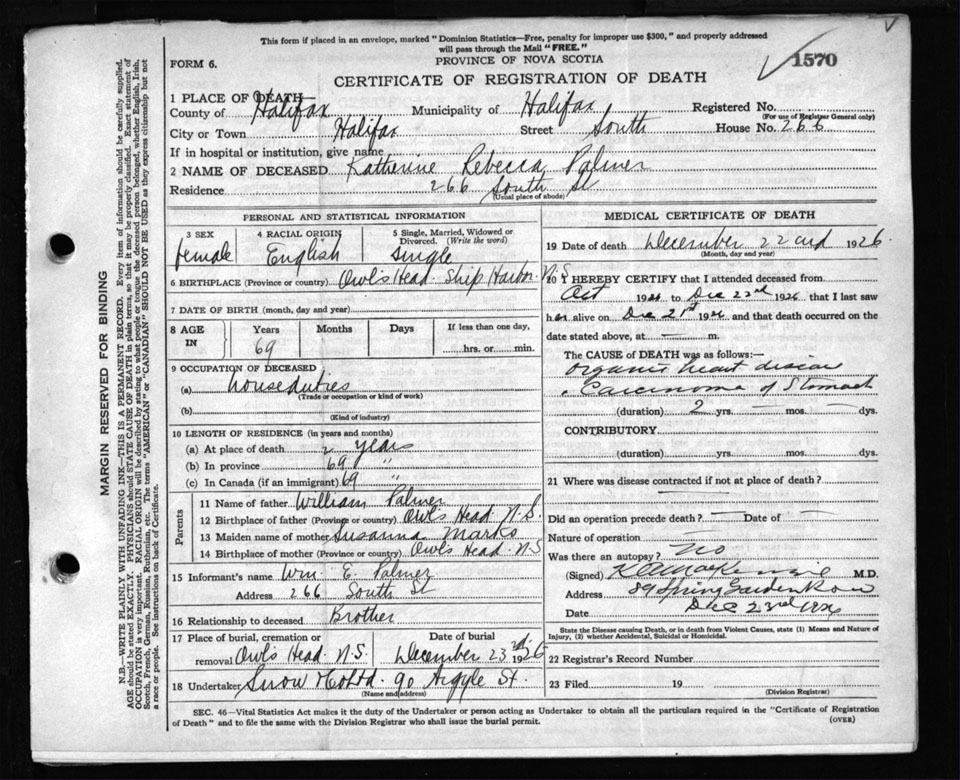 This form if placed in an envelope, marked "Dominion Statistics—Free, penalty for improper use $300," and properly addressed
will pass through the Mail "FREE."
PROVINCE OF NOVA SCOTIA
FORM 6.
1570
CERTIFICATE OF REGISTRATION OF DEATH
1 PLACE OF DEATH
County of Halifax Municipality of Halifax Registered No.
(For use of Registrar General only)
City or Town Halifax Street South House No. 266
If in hospital or institution, give name
2 NAME OF DECEASED Katherine Rebecca Palmer
Residence 266 South St
(Usual place of abode)
PERSONAL AND STATISTICAL INFORMATION
3 SEX 4 RACIAL ORIGIN 5 Single, Married, Widowed or
Divorced. (Write the word)
female English Single
6 BIRTHPLACE (Province or country) Owl's Head Ship Harbor N.S
7 DATE OF BIRTH (month, day and year)
8 AGE IN Years Months Days If less than one day,
69 hrs. or min.
9 OCCUPATION OF DECEASED
(a) house duties
(Trade or occupation or kind of work)
(b)
(Kind of industry)
10 LENGTH OF RESIDENCE (in years and months)
(a) At place of death 2 years
(b) In province 69 "
(c) In Canada (if an immigrant) 69 "
Parents
11 Name of father William Palmer
12 Birthplace of father (Province or country) Owls Head N.S.
13 Maiden name of mother Susanna Marks
14 Birthplace of mother (Province or country) Owls Head N.S
15 Informant's name Wm. E. Palmer
Address 266 South St
16 Relationship to deceased Brother
17 Place of burial, cremation or Date of burial
removal Owls Head N.S. December 23rd 1926
18 Undertaker Snow & Co Ltd. 90 Argyle St.
(Name and address)
MEDICAL CERTIFICATE OF DEATH
19 Date of death December 22nd 1926
(Month, day and year)
20 I HEREBY CERTIFY that I attended deceased from
Oct 192 to Dec 22nd 1926 that I last saw
her alive on Dec 21st 1926 and that death occurred on the
date stated above, at — m.
The CAUSE of DEATH was as follows:—
Organic heart disease
Carcinoma of Stomach
(duration) 2 yrs. — mos. — dys.
CONTRIBUTORY
(duration) yrs. mos. dys.
21 Where was disease contracted if not at place of death?
Did an operation precede death? — Date of —
Nature of operation
Was there an autopsy? no
(Signed) M.D.
Address 89 Spring Garden Road
Date Dec 23rd 1926
State the Disease causing Death, or in death from Violent Causes, state (1) Means and Nature of
Injury, (2) whether Accidental, Suicidal or Homicidal.
22 Registrar's Record Number
23 Filed 19
(Division Registrar)
SEC. 46—Vital Statistics Act makes it the duty of the Undertaker or person acting as Undertaker to obtain all the particulars required in the "Certificate of Registration
of Death" and to file the same with the Division Registrar who shall issue the burial permit. (OVER)
MARGIN RESERVED FOR BINDING
N.B.—WRITE PLAINLY WITH UNFADING INK—THIS IS A PERMANENT RECORD. Every item of information should be carefully supplied.
AGE should be stated EXACTLY. PHYSICIANS should STATE CAUSE OF DEATH in plain terms, so that it may be properly classified. Exact statement of
OCCUPATION is very important. RACIAL ORIGIN will be described by stating to what people or tongue the deceased person belonged, whether English, Irish,
Scotch, French, German, Russian, Ruthenian, etc. The terms "AMERICAN" or "CANADIAN" SHOULD NOT BE USED as they express citizenship but not
a race or people. See instructions on back of Certificate.